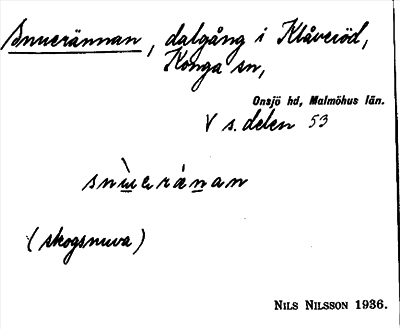 Snuerännan, dalgång i Klåveröd,
Konga sn,
Onsjö hd, Malmöhus län.
V s. delen 53
snùeránan
(skogsnuva)
NILS NILSSON 1936.